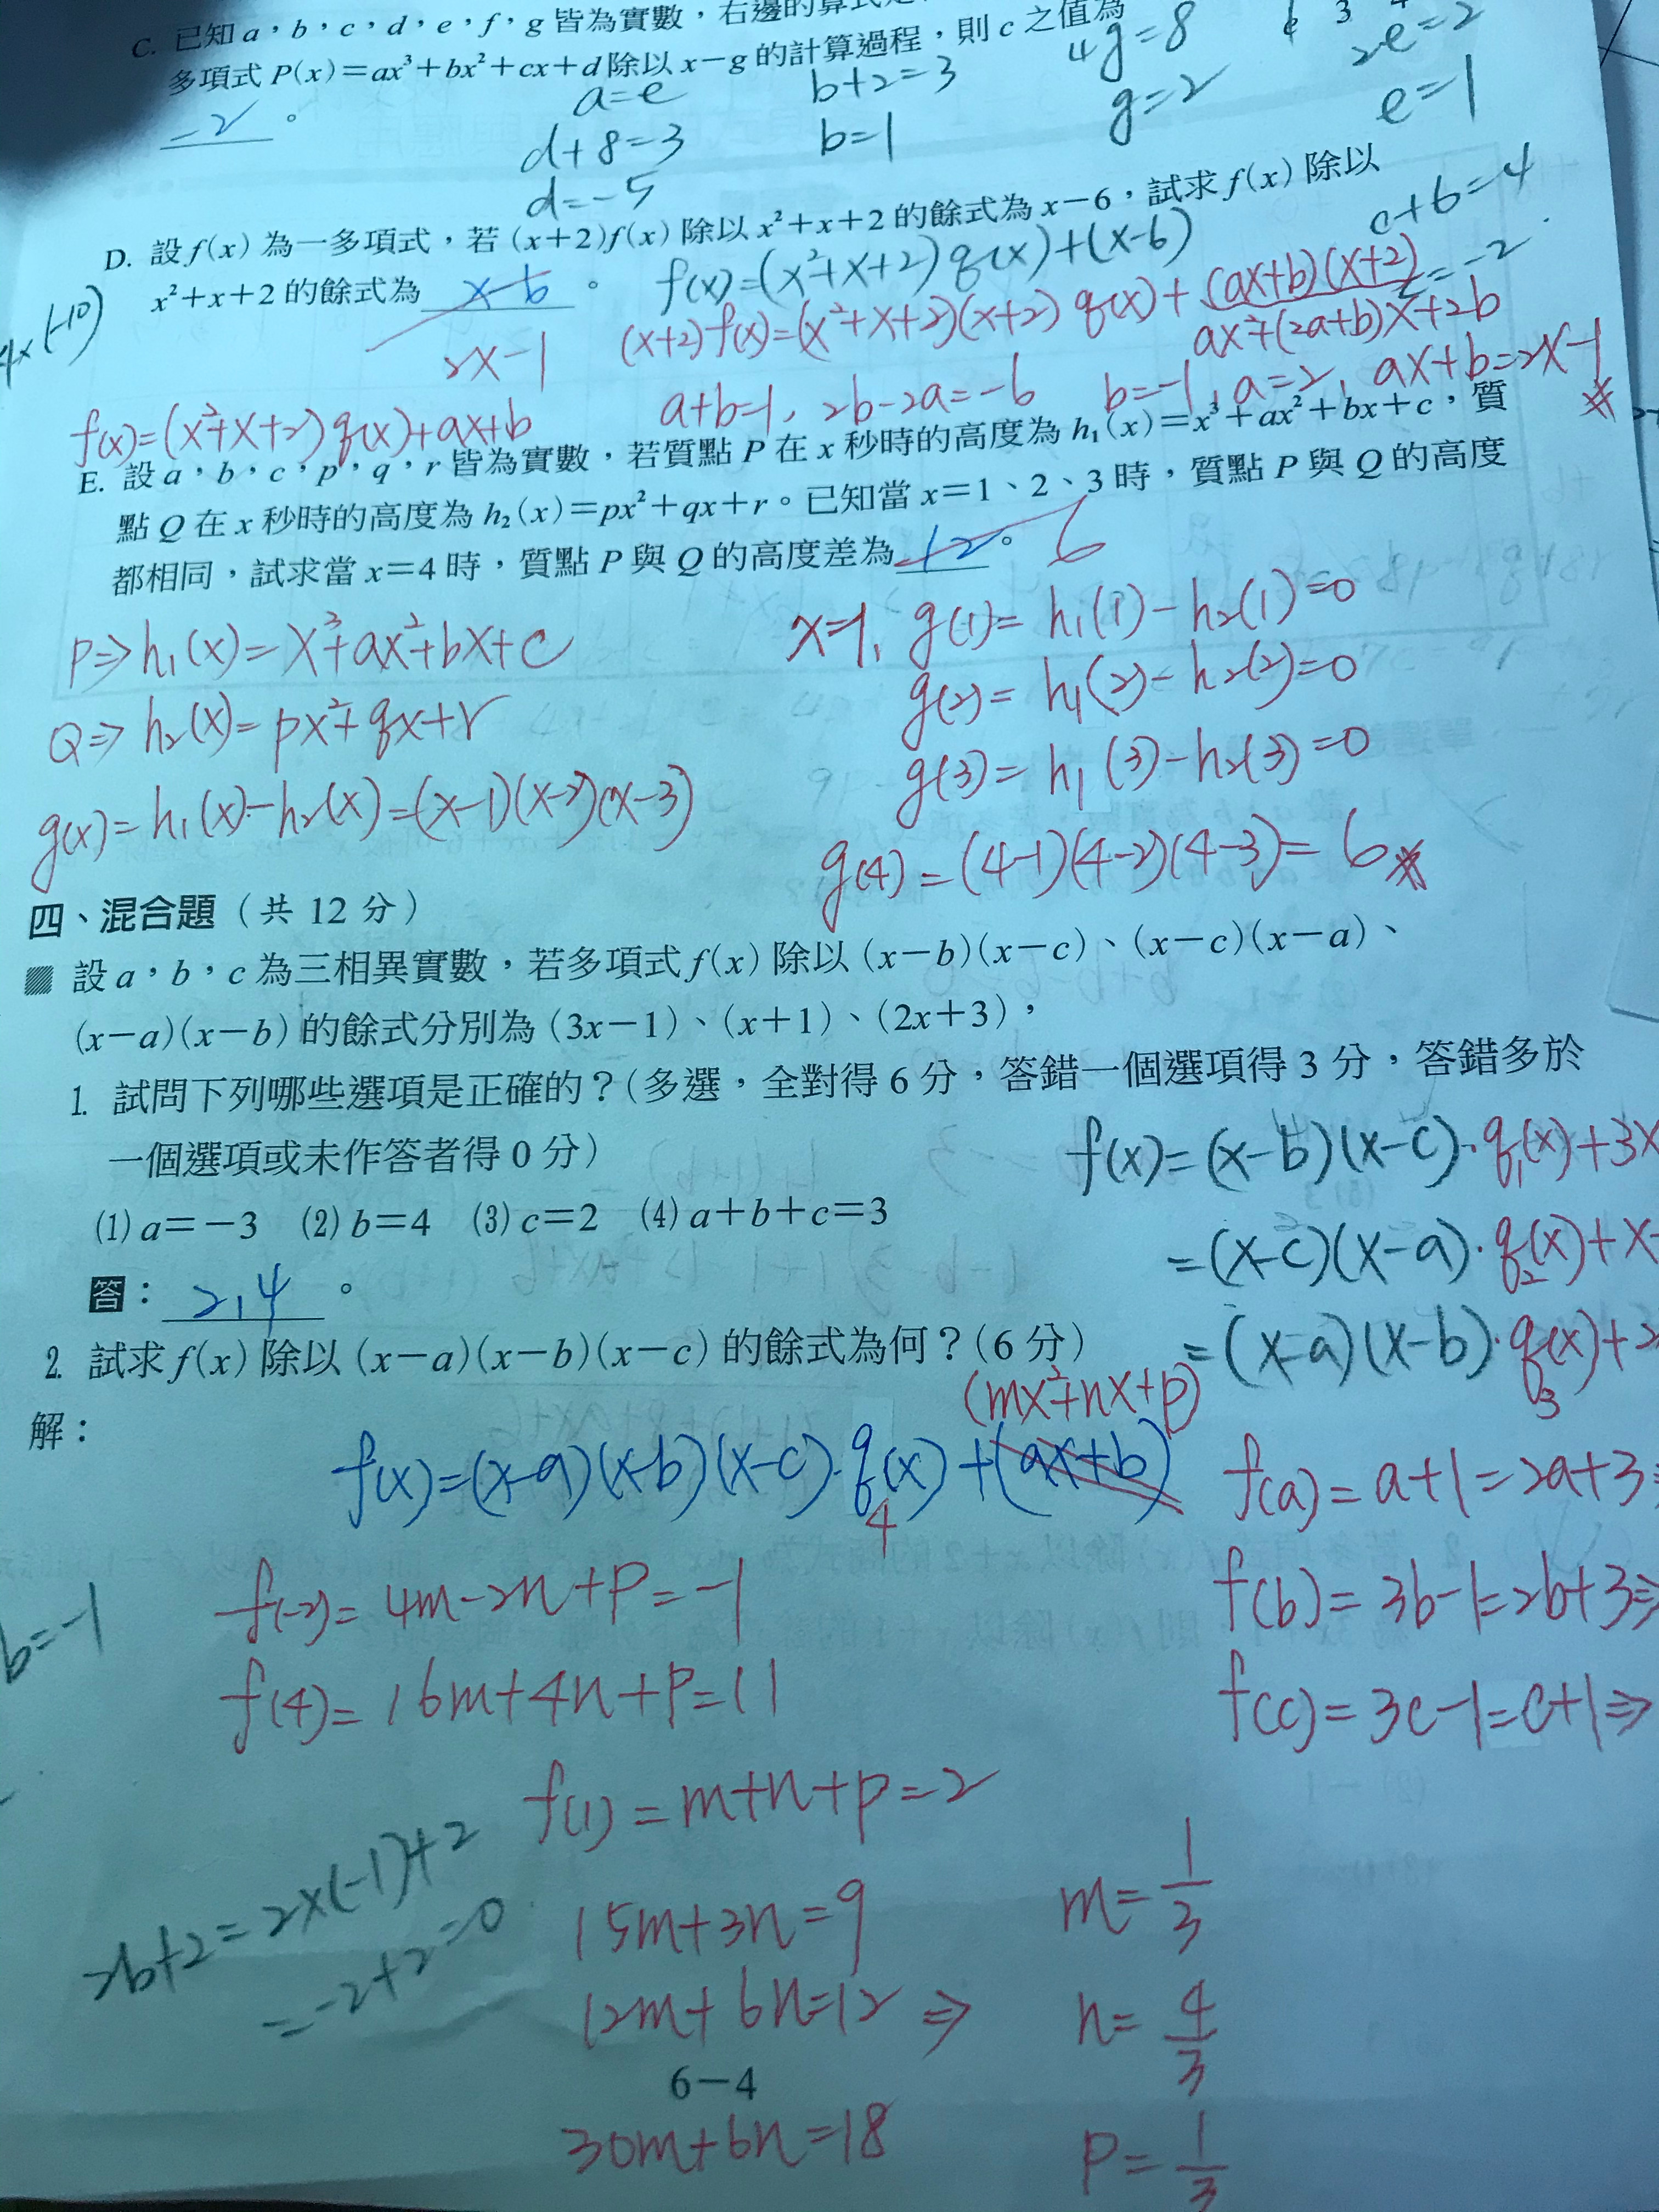 C. 已知 a，b，c，d，e，f，g 皆為實數，右邊的算式
多項式 P(x)＝ax³＋bx²＋cx＋d 除以 x－g 的計算過程，則 c 之值為
-2 。
a=e
d+8=3
d=-5
b+2=3
b=1
4g=8
g=2
2e=2
e=1
c+b=4
c=-2
D. 設 f(x) 為一多項式，若 (x＋2)f(x) 除以 x²＋x＋2 的餘式為 x－6，試求 f(x) 除以
x²＋x＋2 的餘式為 x-6 。
f(x)=(x²+x+2)q(x)+(x-6)
4x(-10)
2x-1
(x+2)f(x)=(x²+x+2)(x+2)q(x)+(ax+b)(x+2)
ax²+(2a+b)x+2b
f(x)=(x²+x+2)q(x)+ax+b
a+b=1, 2b-2a=-6
b=-1, a=2, ax+b=2x-1
E. 設 a，b，c，p，q，r 皆為實數，若質點 P 在 x 秒時的高度為 h₁(x)＝x³＋ax²＋bx＋c，質
點 Q 在 x 秒時的高度為 h₂(x)＝px²＋qx＋r。已知當 x＝1、2、3 時，質點 P 與 Q 的高度
都相同，試求當 x＝4 時，質點 P 與 Q 的高度差為 12 。 6
P⇒h₁(x)=x³+ax²+bx+c
Q⇒h₂(x)=px²+qx+r
g(x)=h₁(x)-h₂(x)=(x-1)(x-2)(x-3)
x=1, g(1)=h₁(1)-h₂(1)=0
g(2)=h₁(2)-h₂(2)=0
g(3)=h₁(3)-h₂(3)=0
g(4)=(4-1)(4-2)(4-3)=6
四、混合題（共 12 分）
設 a，b，c 為三相異實數，若多項式 f(x) 除以 (x－b)(x－c)、(x－c)(x－a)、
(x－a)(x－b) 的餘式分別為 (3x－1)、(x＋1)、(2x＋3)，
1. 試問下列哪些選項是正確的？(多選，全對得 6 分，答錯一個選項得 3 分，答錯多於
一個選項或未作答者得 0 分)
(1) a＝－3 (2) b＝4 (3) c＝2 (4) a＋b＋c＝3
答： 2,4 。
f(x)=(x-b)(x-c)·q₁(x)+3x
=(x-c)(x-a)·q₂(x)+x
=(x-a)(x-b)·q₃(x)+2
2. 試求 f(x) 除以 (x－a)(x－b)(x－c) 的餘式為何？(6 分)
解：
(mx²+nx+p)
f(x)=(x-a)(x-b)(x-c)·q₄(x)+(ax+b)
f(a)=a+1=2a+3
f(b)=3b-1=2b+3⇒
f(c)=3c-1=c+1⇒
f(-2)=4m-2n+p=-1
f(4)=16m+4n+p=11
f(1)=m+n+p=2
b=-1
2b+2=2x(-1)+2
=-2+2=0
15m+3n=9
12m+6n=12 ⇒
30m+6n=18
m=1/3
n=4/3
p=1/3
6－4